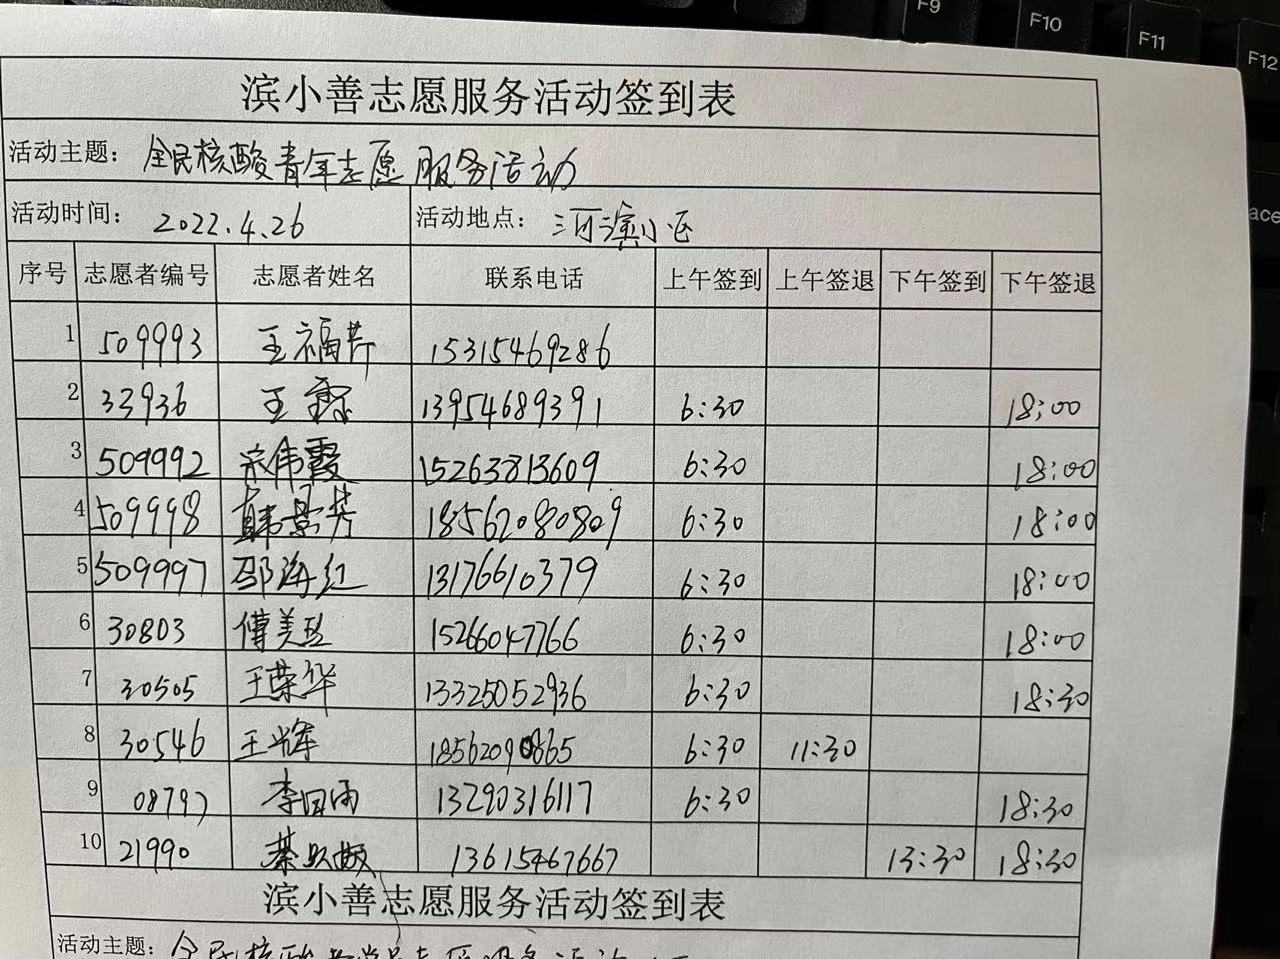 F9
F10
F11
F12
ace
滨小善志愿服务活动签到表
活动主题： 全民核酸青年志愿服务活动
活动时间： 2022.4.26 活动地点： 河滨小区
序号 志愿者编号 志愿者姓名 联系电话 上午签到 上午签退 下午签到 下午签退
1 509993 王福芹 15315469286
2 33936 王霞 13954689391 6:30 18:00
3 509992 宗伟霞 15263813609 6:30 18:00
4 509998 韩景芳 18562080809 6:30 18:00
5 509997 邵海红 13176610379 6:30 18:00
6 30803 傅美 15266047766 6:30 18:00
7 30505 王荣华 13325052936 6:30 18:30
8 30546 王光军 18562090865 6:30 11:30
9 08797 李国雨 13290316117 6:30 18:30
10 21990 綦 13615467667 13:30 18:30
滨小善志愿服务活动签到表
活动主题： 全民核酸